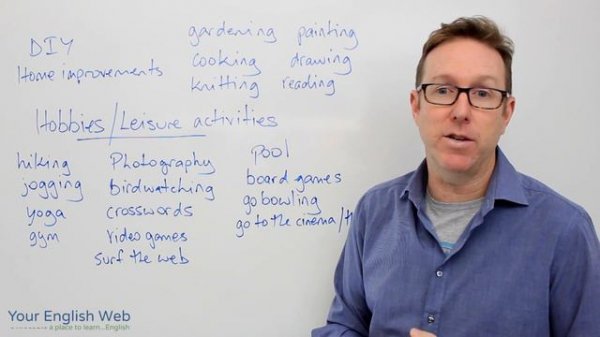 DIY
Home improvements
gardening painting
cooking drawing
knitting reading
Hobbies/Leisure activities
hiking Photography pool
jogging birdwatching board games
yoga crosswords go bowling
gym video games go to the cinema/
surf the web
Your English Web
a place to learn...English